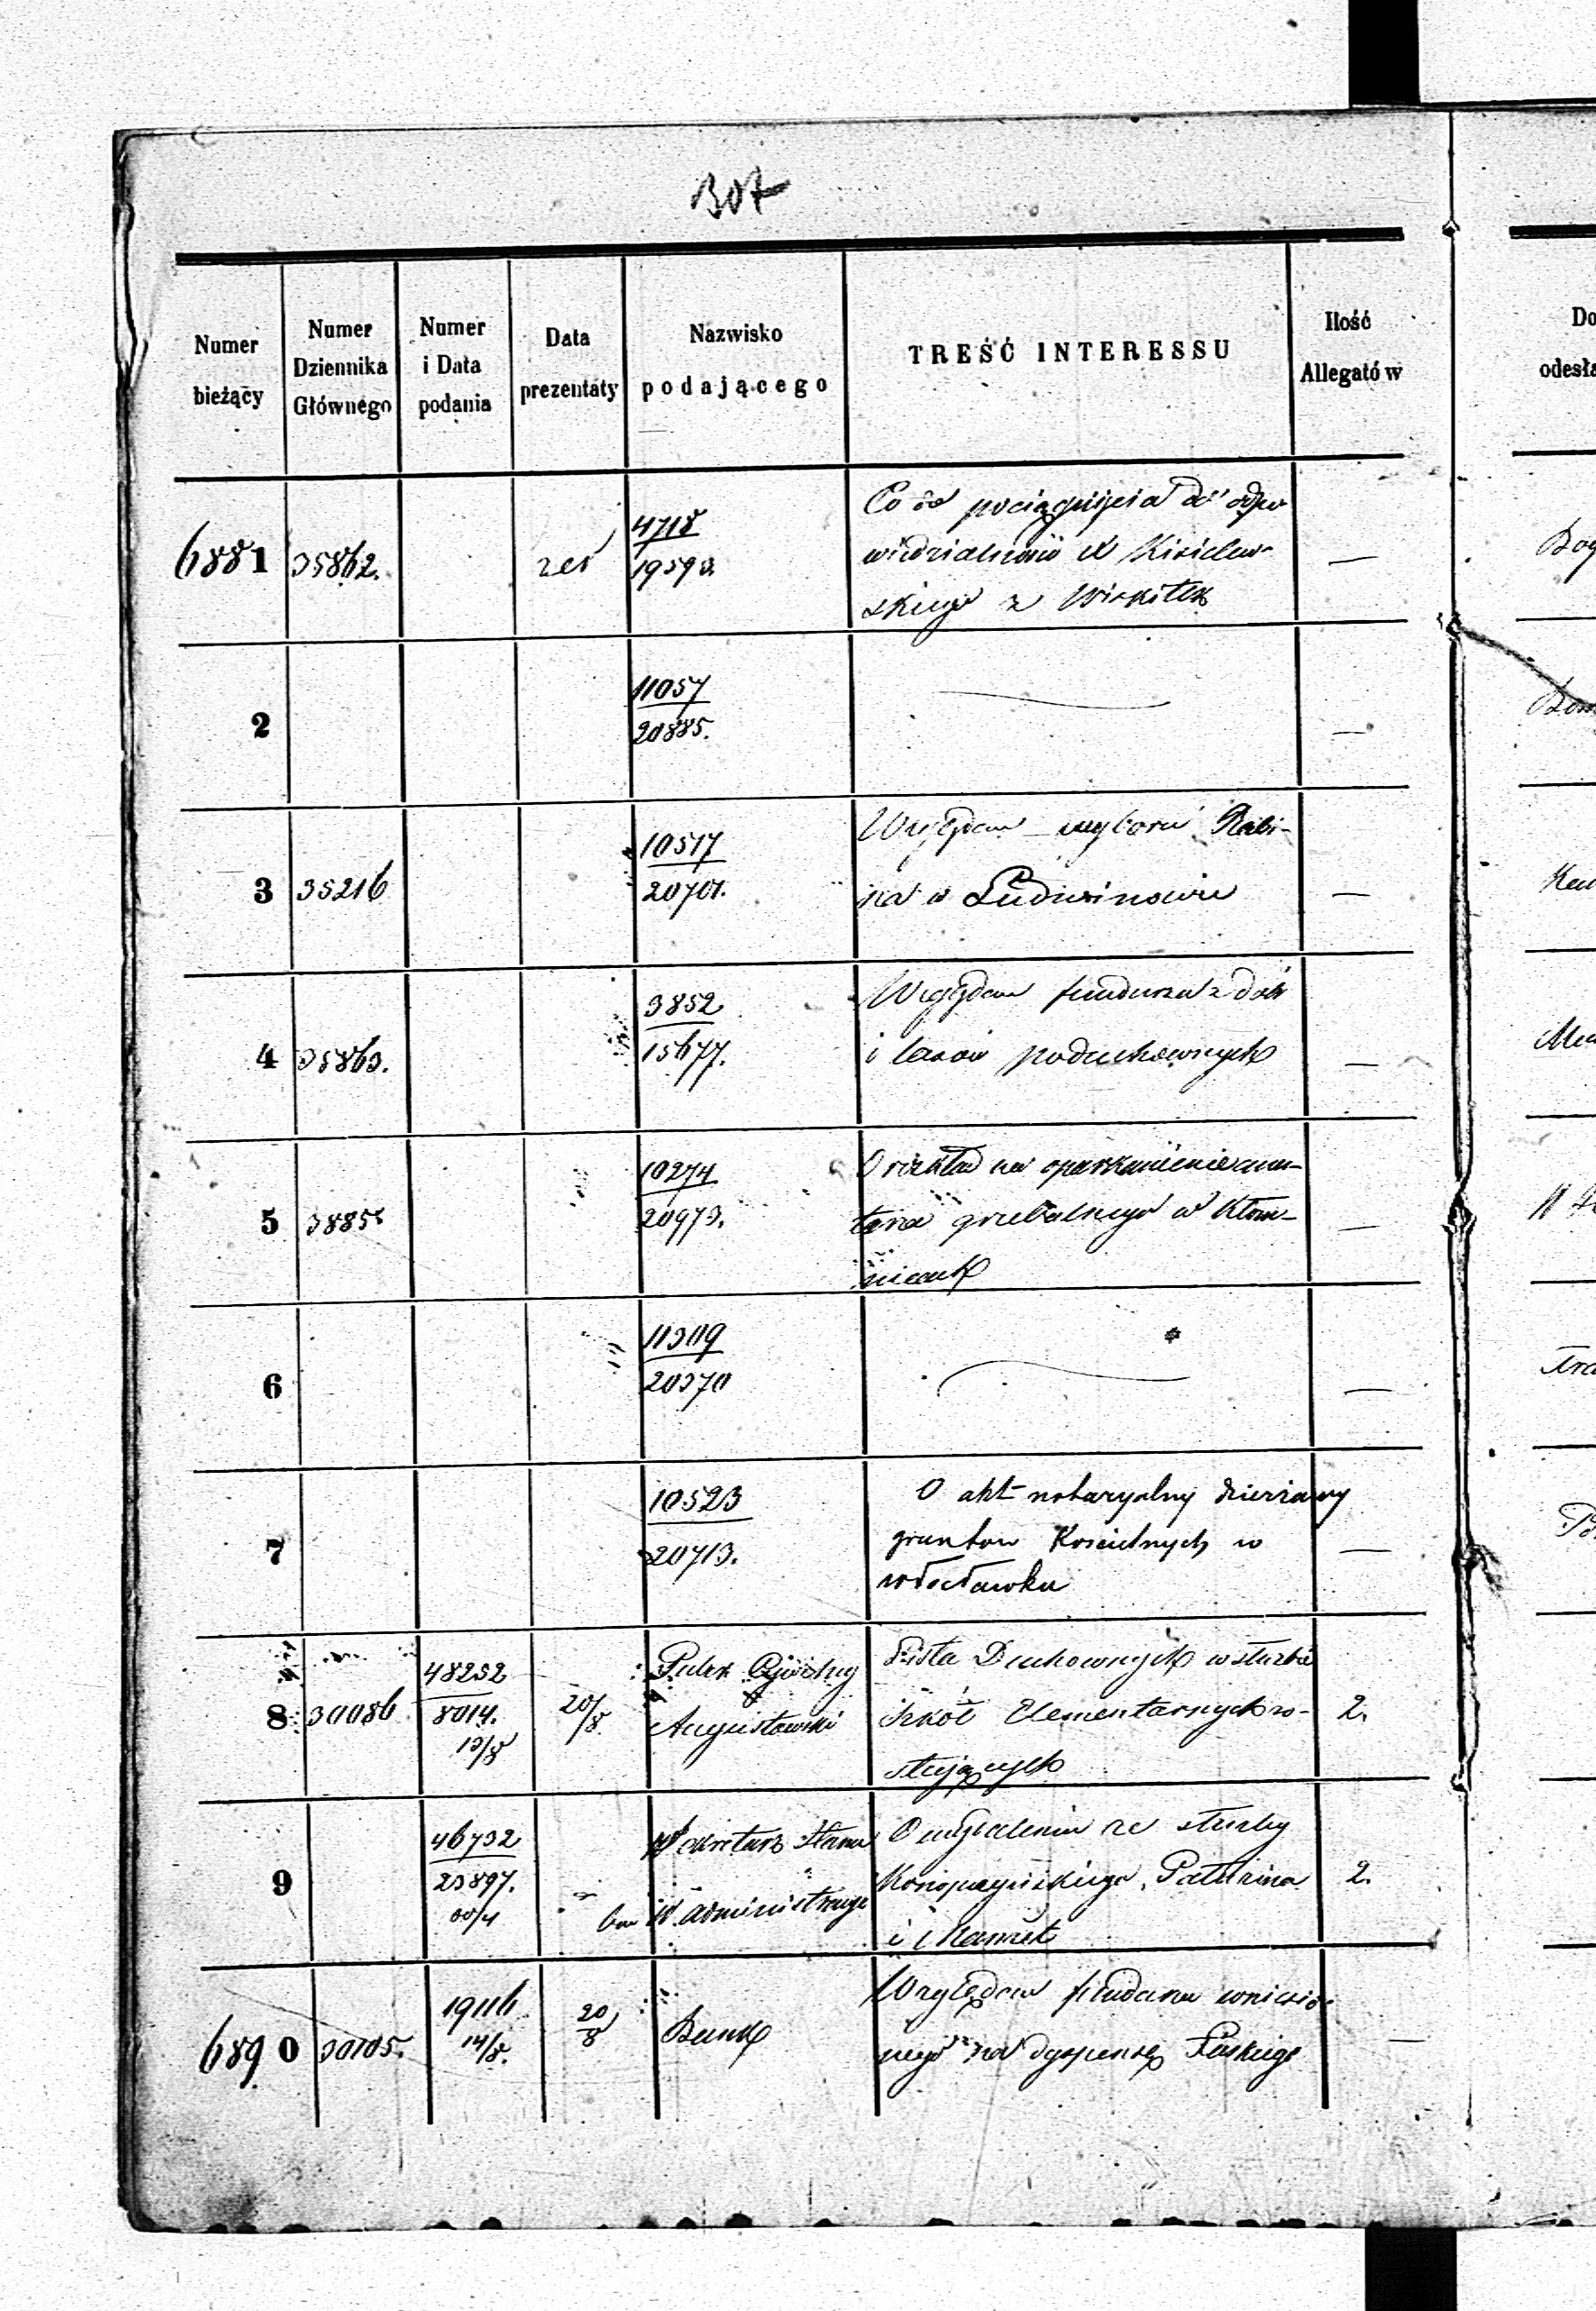 307
Numer bieżący
Numer Dziennika Głównego
Numer i Data podania
Data prezentaty
Nazwisko podającego
TREŚĆ INTERESSU
Ilość Allegatów
Do
odesła
6881 35862. 4718 19593 —
Co do pociągnięcia do odpo
wiedzialności X Kisielew-
skiego z Wiskitek
2 11057 20885. —
3 35216 10517 20701. —
Względem wyboru Rabi-
na w Ludwinowie
4 35863. 3852 15677. —
Względem funduszu z dóbr
i lasów poduchownych
5 3885 10274 20973. —
O rozkład na oparkanienie cmen-
tarza grzebalnego w Kłom-
nicach
6 11309 20370 —
7 10523 20713. —
O akt notaryalny dzierżawy
gruntow Kościelnych w
Włocławku
8 30086 48252 8014. 13/8 20/8 2.
Augustowski
Lista Duchownych w służbie
szkół Elementarnych zo-
stających
9 46732 23897. 2.
Sekretarz Stanu
w administracyi
O oddaleniu ze służby
i
6890 30105. 19116 14/8. 20/8 Bank —
Względem funduszu wniesio-
nego na dyspensę